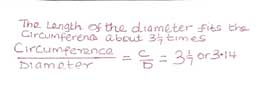 The Length of the diameter fits the
Circumference about 3 1/7 times
Circumference/Diameter = C/D = 3 1/7 or 3.14